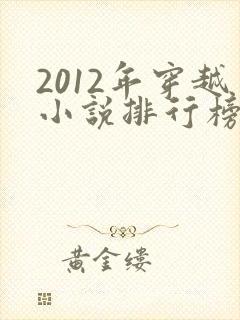 2012年穿越
小説排行榜
黄金缕